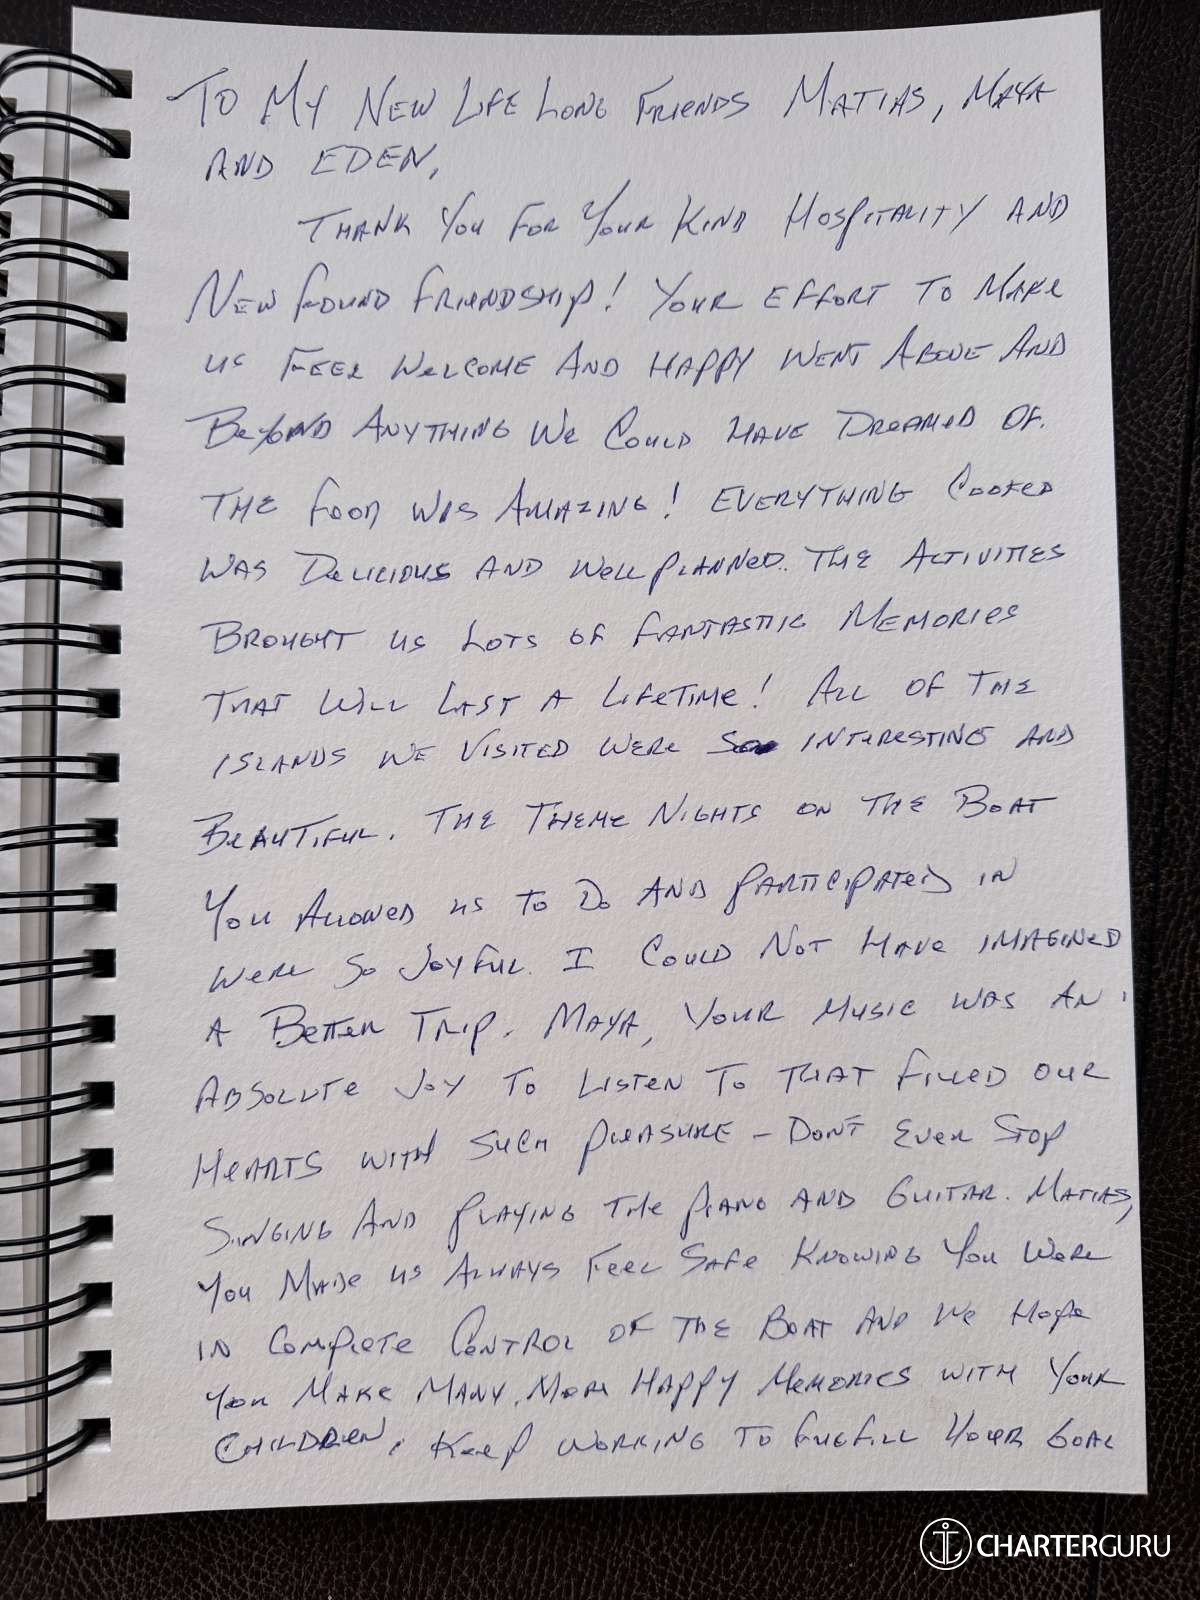 TO MY NEW LIFE LONG FRIENDS MATIAS, MAYA
AND EDEN,
THANK YOU FOR YOUR KIND HOSPITALITY AND
NEW FOUND FRIENDSHIP! YOUR EFFORT TO MAKE
US FEEL WELCOME AND HAPPY WENT ABOVE AND
BEYOND ANYTHING WE COULD HAVE DREAMED OF.
THE FOOD WAS AMAZING! EVERYTHING COOKED
WAS DELICIOUS AND WELL PLANNED. THE ACTIVITIES
BROUGHT US LOTS OF FANTASTIC MEMORIES
THAT WILL LAST A LIFETIME! ALL OF THE
ISLANDS WE VISITED WERE SO INTERESTING AND
BEAUTIFUL. THE THEME NIGHTS ON THE BOAT
YOU ALLOWED US TO DO AND PARTICIPATED IN
WERE SO JOYFUL. I COULD NOT HAVE IMAGINED
A BETTER TRIP. MAYA, YOUR MUSIC WAS AN
ABSOLUTE JOY TO LISTEN TO THAT FILLED OUR
HEARTS WITH SUCH PLEASURE - DON'T EVER STOP
SINGING AND PLAYING THE PIANO AND GUITAR. MATIAS,
YOU MADE US ALWAYS FEEL SAFE KNOWING YOU WERE
IN COMPLETE CONTROL OF THE BOAT AND WE HOPE
YOU MAKE MANY MORE HAPPY MEMORIES WITH YOUR
CHILDREN. KEEP WORKING TO FULFILL YOUR GOAL
CHARTERGURU